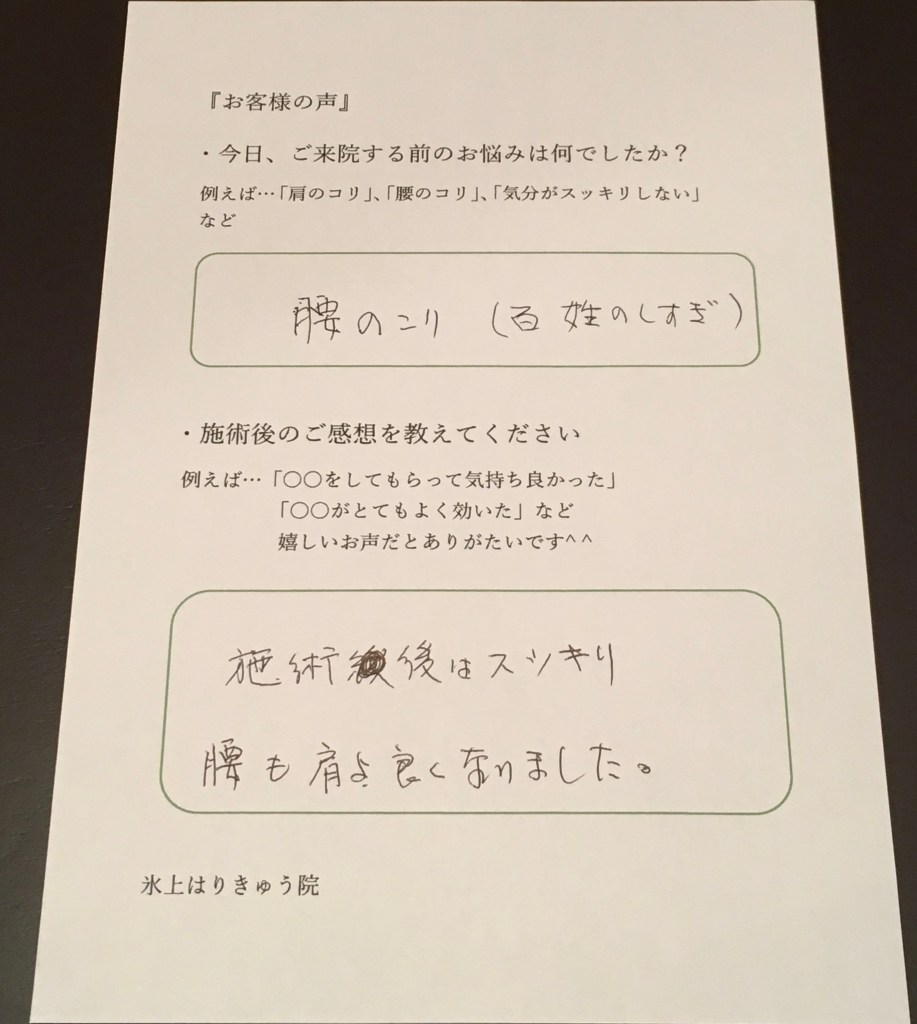 『お客様の声』
・今日、ご来院する前のお悩みは何でしたか？
例えば…「肩のコリ」、「腰のコリ」、「気分がスッキリしない」
など
腰のこり （百姓のしすぎ）
・施術後のご感想を教えてください
例えば…「〇〇をしてもらって気持ち良かった」
「〇〇がとてもよく効いた」など
嬉しいお声だとありがたいです^ ^
施術後はスッキリ
腰も肩も良くなりました。
氷上はりきゅう院